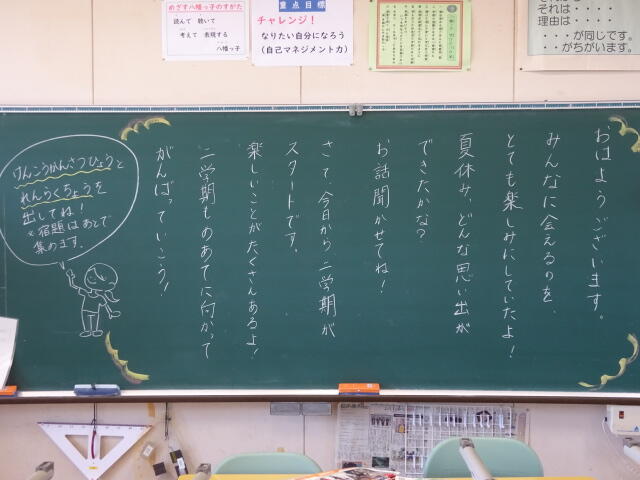 めざす八幡っ子のすがた
読んで 聴いて
考えて 表現する
八幡っ子
重点目標
チャレンジ！
なりたい自分になろう
（自己マネジメント力）
それは・・・・
理由は・・・・
・・・が同じです。
・・がちがいます。
おはようございます。
みんなに会えるのを、
とても楽しみにしていたよ！
夏休み、どんな思い出が
できたかな？
お話聞かせてね！
さて、今日から、二学期が
スタートです。
楽しいことがたくさんあるよ！
二学期ものあてに向かって
がんばっていこう！
けんこうかんさつひょうと
れんらくちょうを
出してね！
※宿題はあとで
集めます。